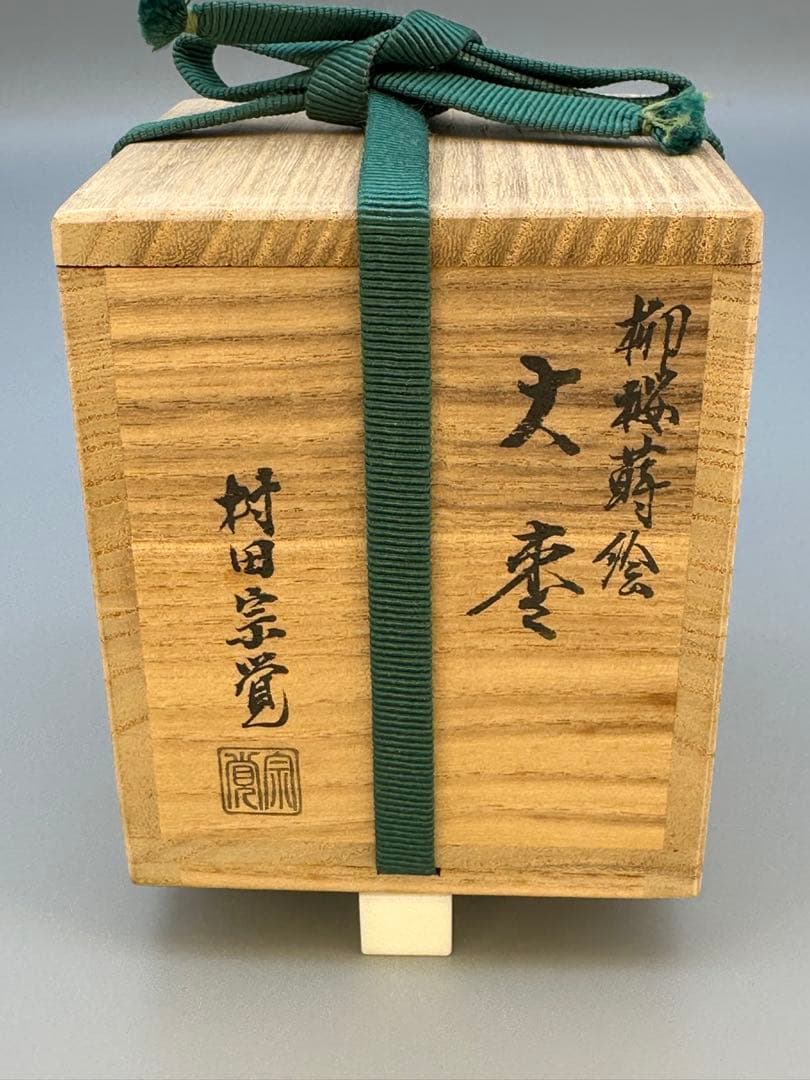 柳桜蒔絵
大棗
村田宗覚
宗覚